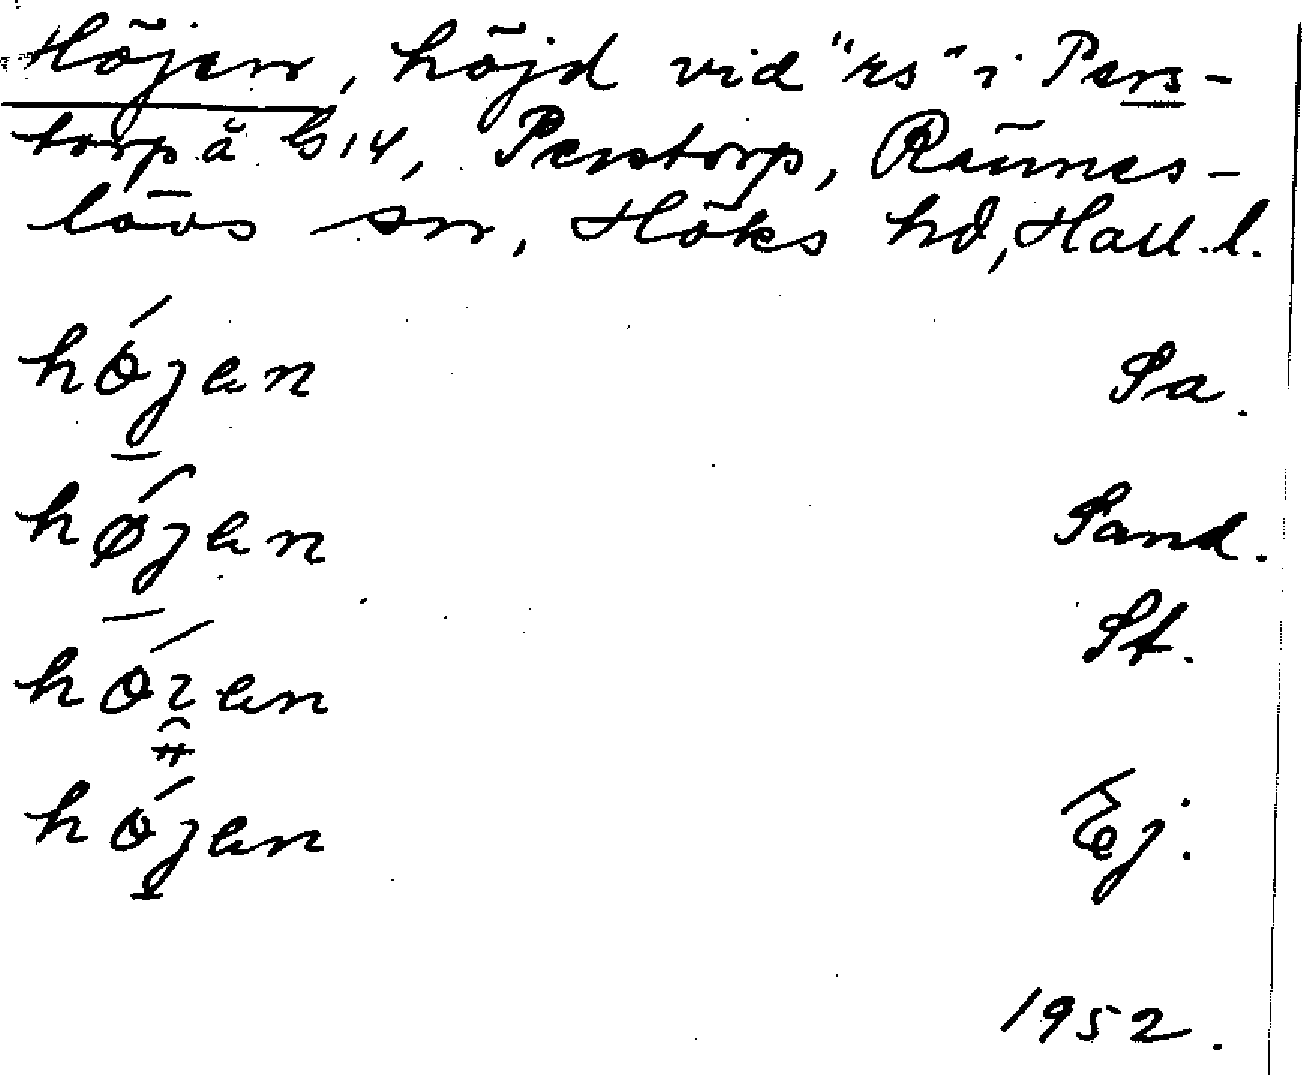 Höjen, höjd vid "rs" i Pers-
torp å G14, Perstorp, Rännes-
lövs sn, Höks hd, Hall.l.
hǿjen Sa.
hǿjen Sand.
St.
hen
hǿjen Ej.
1952.